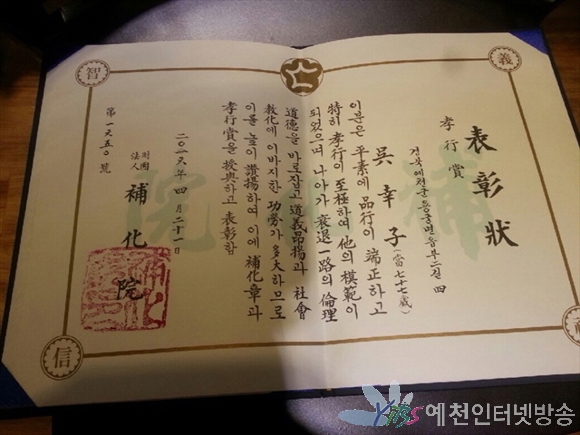 表彰狀
孝行賞
경북 예천군 용궁면 읍부二길 四
吳幸子 (當七十七歲)
이분은 平素에 品行이 端正하고
特히 孝行이 至極하여 他의 模範이
되었으며 나아가 衰退一路의 倫理
道德을 바로잡고 道義昂揚과 社會
敎化에 이바지한 功勞가 多大하므로
이를 높이 讚揚하여 이에 補化章과
孝行賞을 授與하고 表彰함
二○一六年 四月 二十一日
財團法人 補化院
第一六五○號
義
智
信
예천인터넷방송